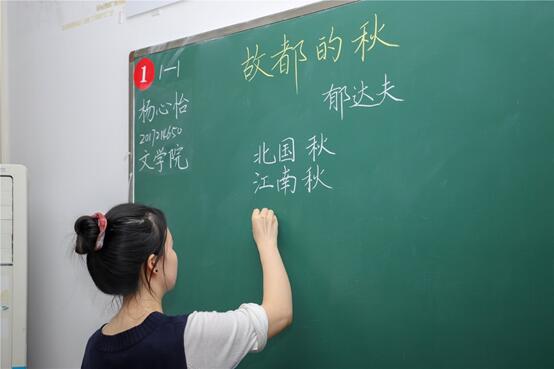 1 1-1
故都的秋
杨心怡
郁达夫
2017214650
文学院
北国 秋
江南秋